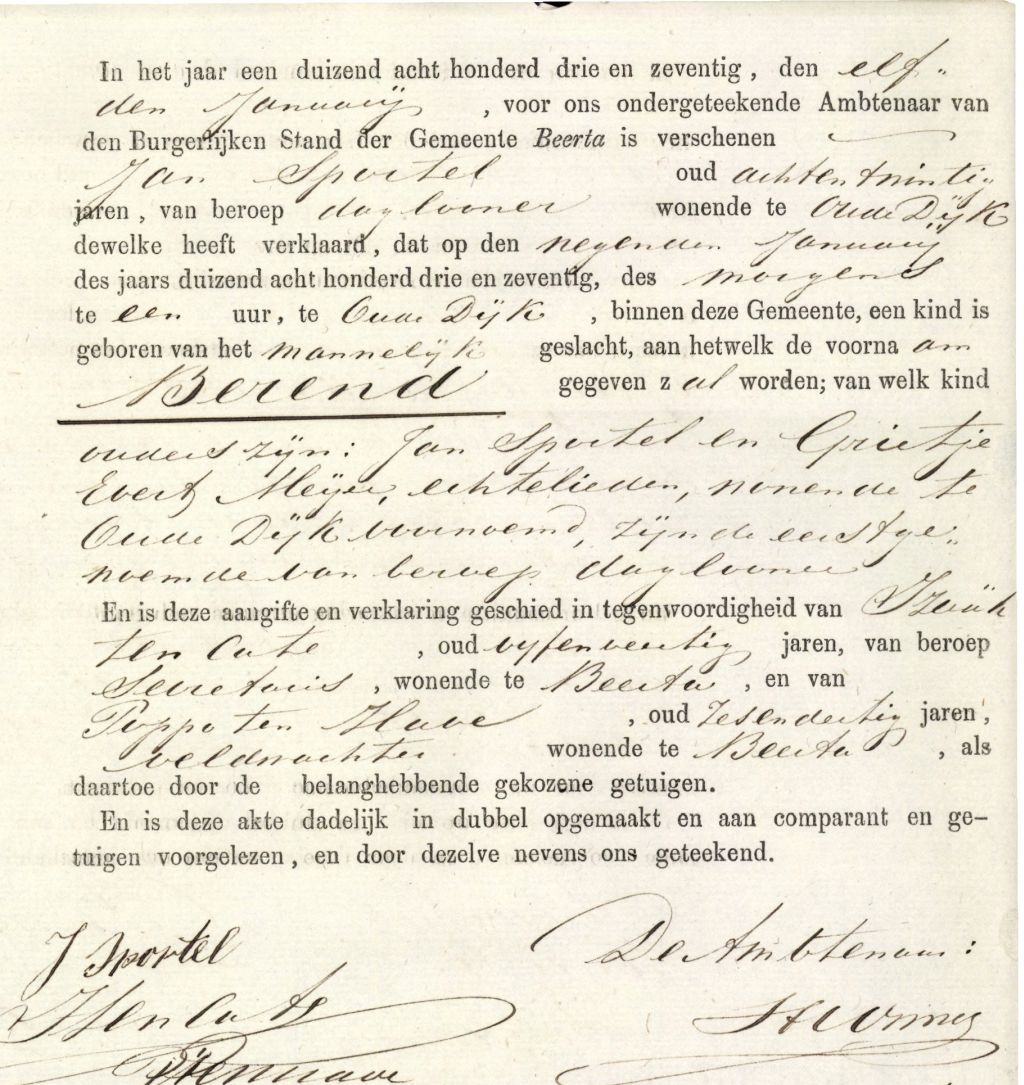 In het jaar een duizend acht honderd drie en zeventig, den elf-
den Januarij, voor ons ondergeteekende Ambtenaar van
den Burgerlijken Stand der Gemeente Beerta is verschenen
Jan Sportel oud achtentwintig
jaren, van beroep daglooner wonende te Oude Dijk
dewelke heeft verklaard, dat op den negenden Januarij
des jaars duizend acht honderd drie en zeventig, des morgens
te een uur, te Oude Dijk, binnen deze Gemeente, een kind is
geboren van het mannelijk geslacht, aan hetwelk de voorna am
Berend gegeven z al worden; van welk kind
ouders zijn: Jan Sportel en Grietje
Evert Meijer, echtelieden, wonende te
Oude Dijk voornoemd, zijnde eerstge-
noemde van beroep daglooner
En is deze aangifte en verklaring geschied in tegenwoordigheid van
ten Cate, oud vijfenveertig jaren, van beroep
Secretaris, wonende te Beerta, en van
Poppo ten Have, oud zesendertig jaren,
veldwachter wonende te Beerta, als
daartoe door de belanghebbende gekozene getuigen.
En is deze akte dadelijk in dubbel opgemaakt en aan comparant en ge-
tuigen voorgelezen, en door dezelve nevens ons geteekend.
J Sportel
De Ambtenaar:
ten Cate
ten Have